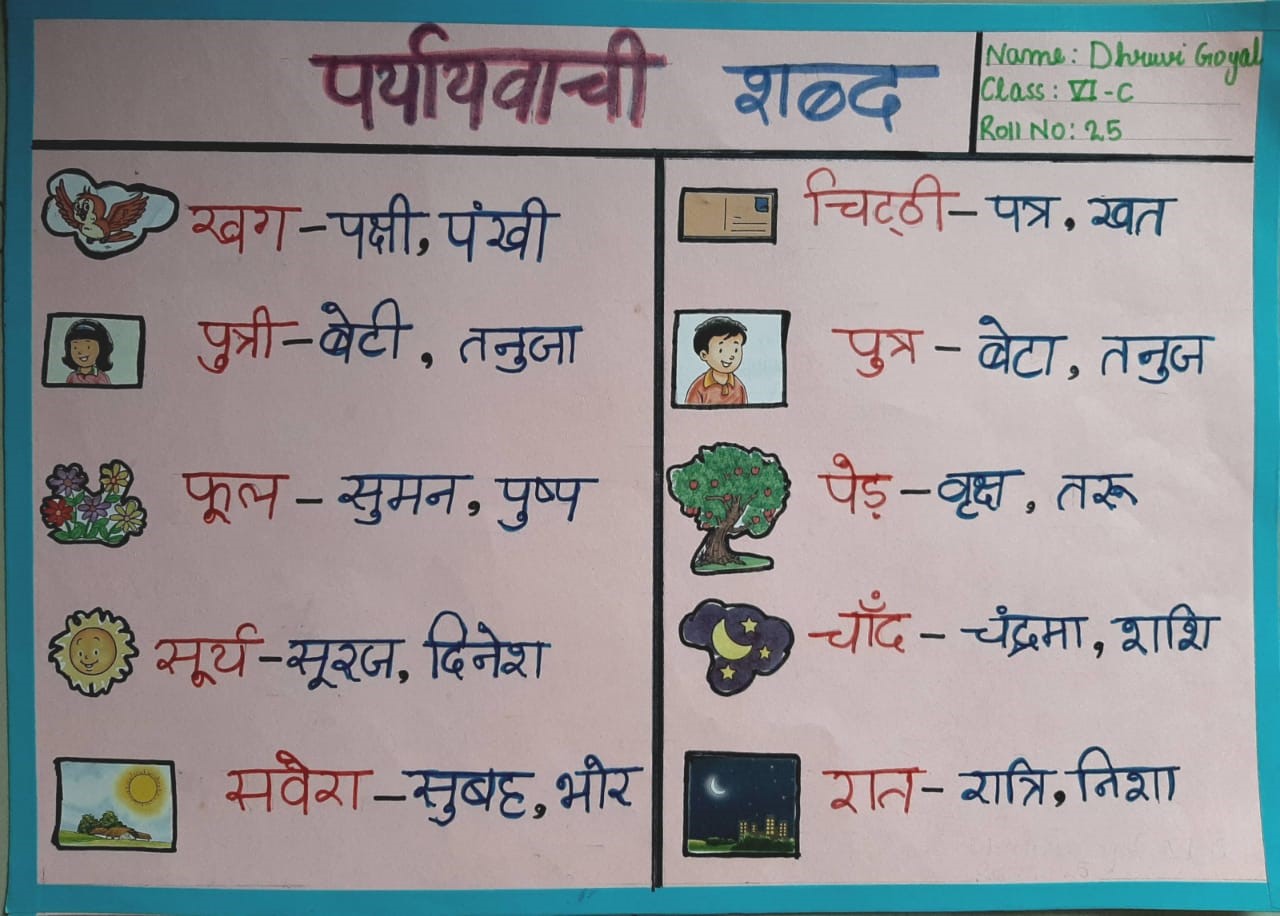 पर्यायवाची शब्द
Name: Dhruvi Goyal
Class: VI-C
Roll No: 25
खग – पक्षी, पंखी
पुत्री – बेटी, तनुजा
फूल – सुमन, पुष्प
सूर्य – सूरज, दिनेश
सवेरा – सुबह, भोर
चिट्ठी – पत्र, खत
पुत्र – बेटा, तनुज
पेड़ – वृक्ष, तरू
चाँद – चंद्रमा, शशि
रात – रात्रि, निशा